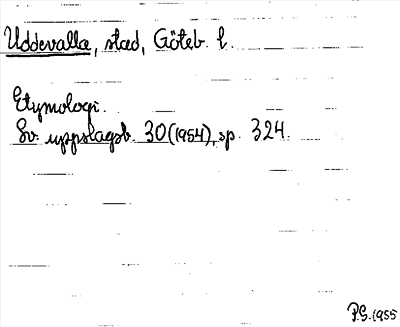 Uddevalla, stad, Göteb. l.
Etymologi.
Sv. uppslagsb. 30 (1954), sp. 324.
P.G. 1955